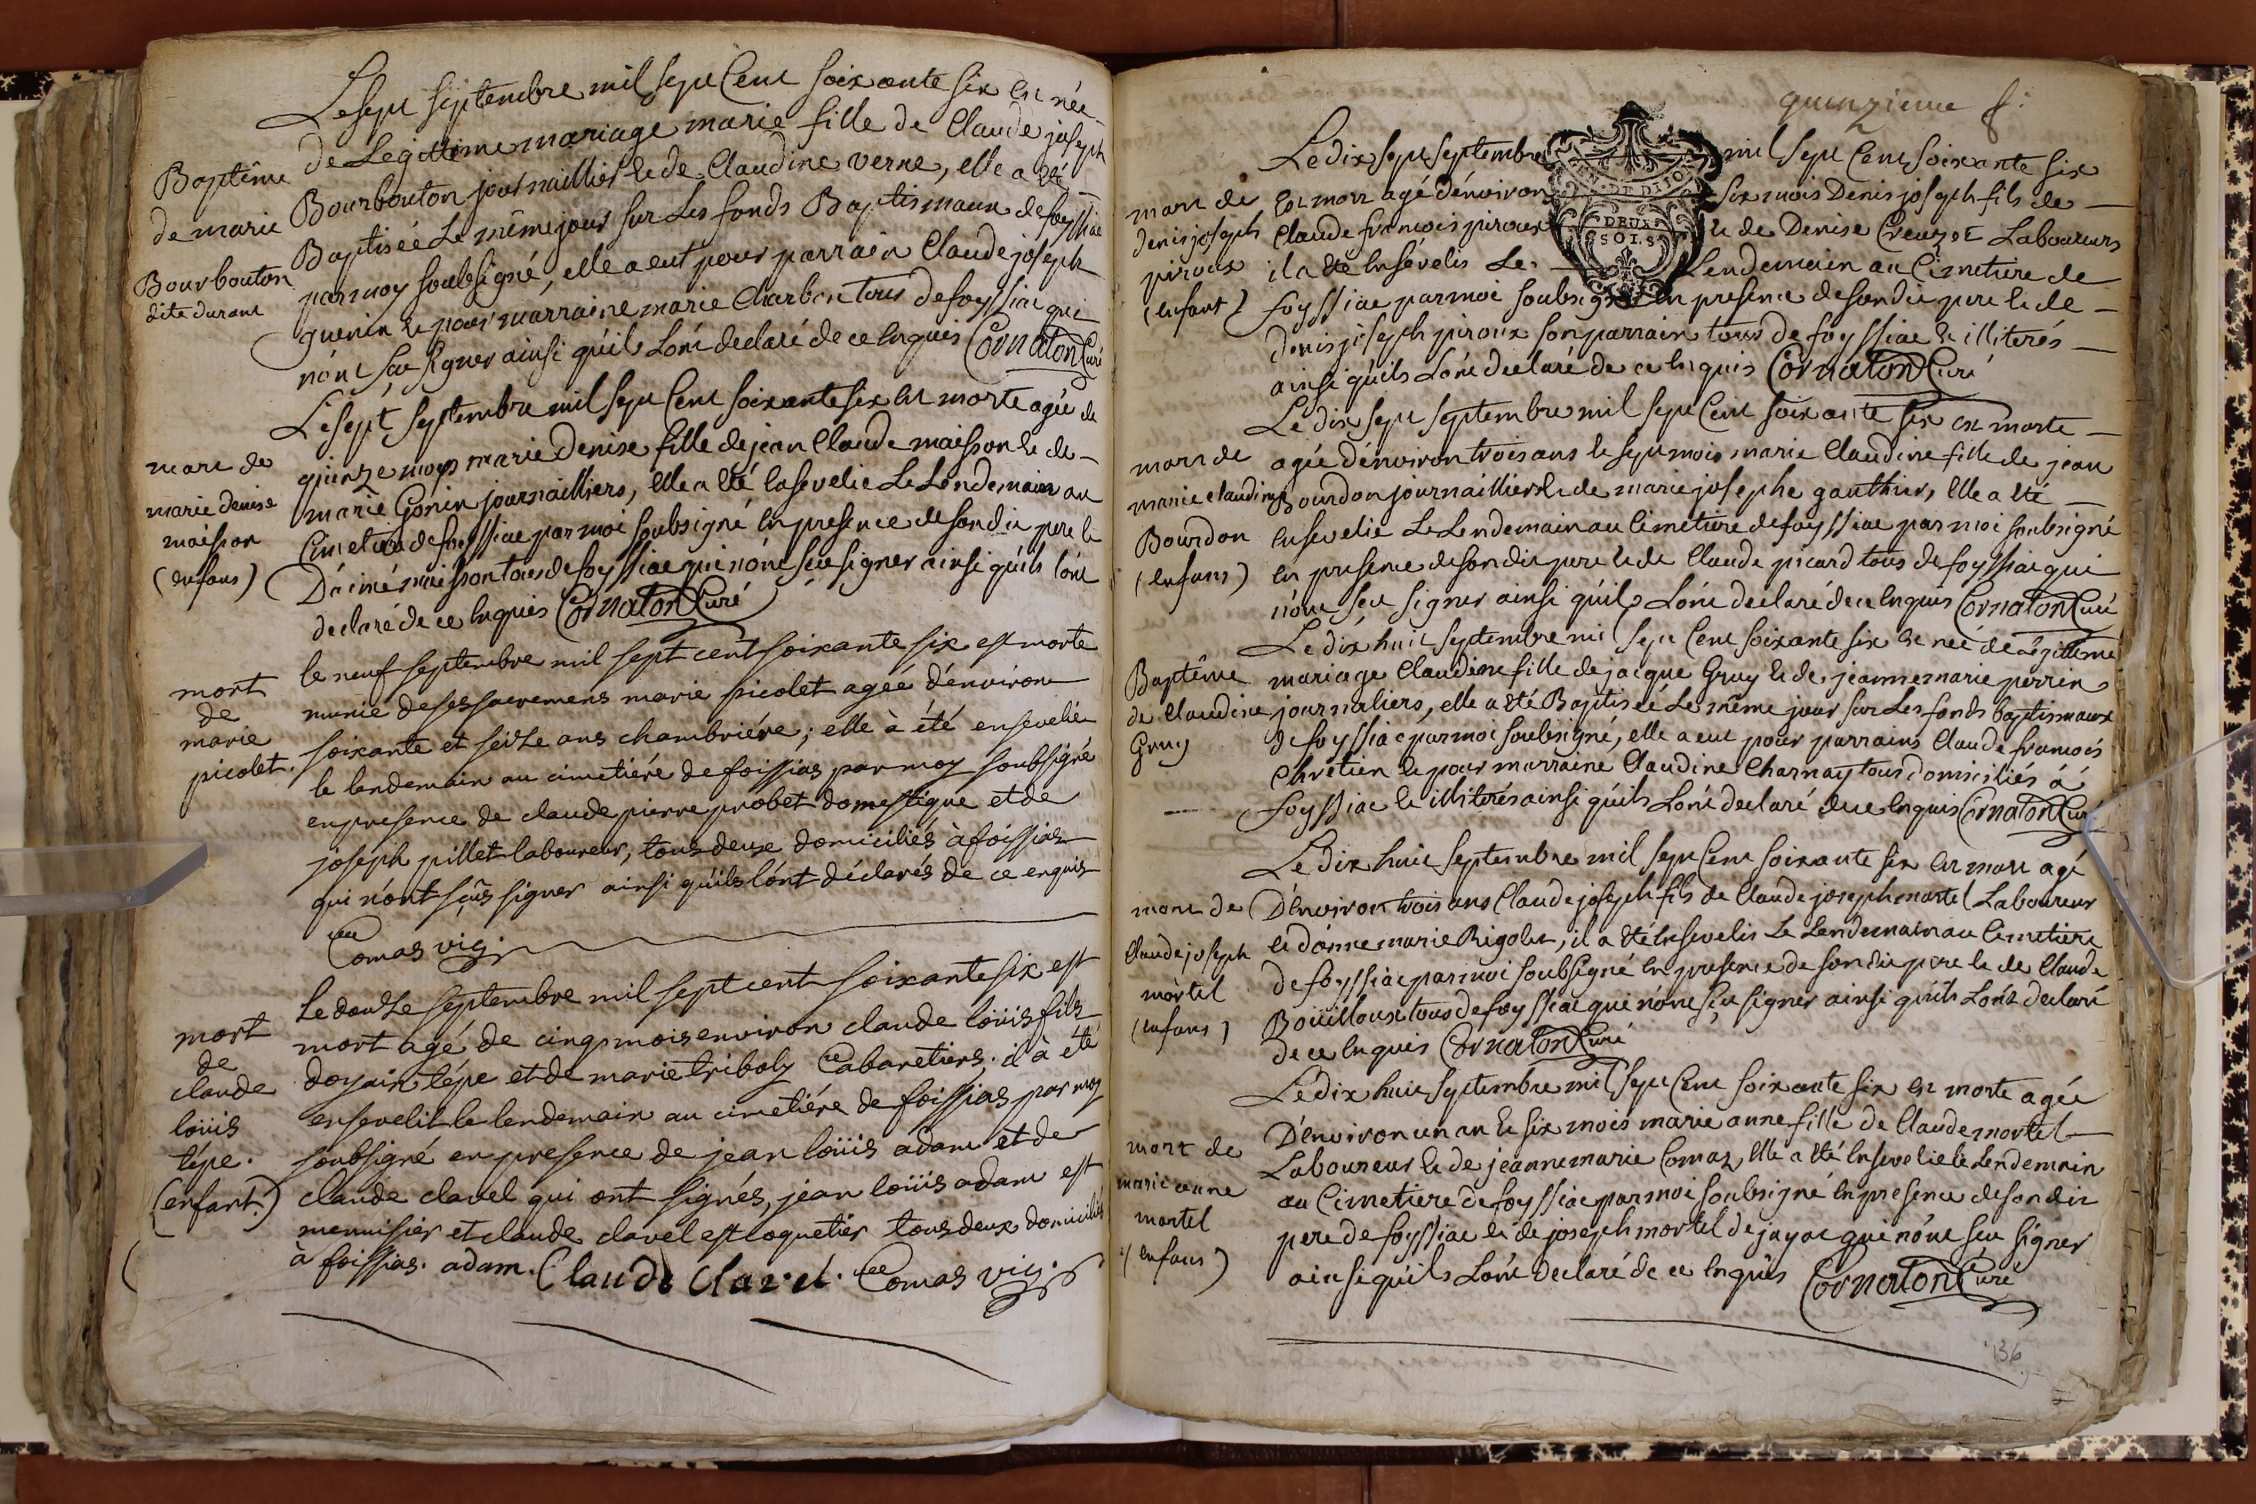 Le sept septembre mil sept Cent soixante six est née
de Legitime mariage marie fille de Claude joseph
Baptême
de marie
Bourbouton
dite durant
Bourbouton journaillier et de Claudine verne, elle a été
Baptisée Le même jour sur Les fonds Baptismaux de foyssiac
par moy soubsigné, elle a eut pour parrain Claude joseph
guerin et pour marraine marie Charbon tous de foyssiac qui
n'ont sçu signer ainsi qu'ils L'ont declaré de ce enquis Cornaton Curé
mort de
marie denise
maisson
(enfans)
Le sept septembre mil sept Cent soixante six est morte agée de
quinze moys marie Denise fille de jean Claude maisson et de
marie Gonin journailliers, elle a été ensevelie Le Lendemain au
Cimetiere de foyssiac par moi soubsigné en presence de son dit pere et
D'aimé maisson tous de foyssiac qui n'ont sçu signer ainsi qu'ils l'ont
declaré de ce enquis Cornaton Curé
mort
de
marie
picolet.
le neuf septembre mil sept cent soixante six est morte
munie de ses sacremens marie picolet agée d'environ
soixante et seize ans chambriére; elle à été ensevelie
le lendemain au cimetiére de foissias par moy soubsigné
en presence de claude pierre probet domestique et de
joseph pillet laboureur, tous deux domiciliés à foissias
qui n'ont sçus signer ainsi qu'ils l'ont déclarés de ce enquis
Comas vic.
mort
de
claude
loüis
tépe.
(enfant.)
Le douze septembre mil sept cent soixante six est
mort agé de cinq mois environ claude loüis fils
doyain tépe et de marie triboly Cabaretiers; il à été
ensevelit le lendemain au cimetiére de foissias par moy
soubsigné en presence de jean loüis adam et de
claude clavel qui ont signés, jean loüis adam est
menuisier et claude clavel est coquetier tous deux domiciliés
à foissias. adam. Claude Clavel. Comas vic.
quinzieme f.
GEN. DE DIJON
DEUX
SOLS
mort de
denis joseph
piroux
(enfant)
Le dix sept septembre mil sept Cent soixante six
est mort agé d'environ six mois Denis joseph fils de
Claude francois piroux et de Denise Creuzet Laboureurs
il a été ensévelis Le Lendemain au Cimetiere de
foyssiac par moi soubsigné en presence de son dit pere et de
denis joseph piroux son parrain tous de foyssiac et illiterés
ainsi qu'ils L'ont declaré de ce enquis Cornaton Curé
mort de
marie claudine
Bourdon
(enfans)
Le dix sept septembre mil sept Cent soixante six est morte
agée d'environ trois ans et sept mois marie Claudine fille de jean
Bourdon journaillier et de marie josephe gauthier, elle a été
ensevelie Le Lendemain au Cimetiere de foyssiac par moi soubsigné
en presence de son dit pere et de Claude picard tous de foyssiac qui
n'ont sçu signer ainsi qu'ils L'ont declaré de ce enquis Cornaton Curé
Baptême
de Claudine
Gruy
Le dix huit septembre mil sept Cent soixante six est née de Legitime
mariage Claudine fille de jacque Gruy et de jeanne marie perrin
journaliers, elle a été Baptisée Le même jour sur Les fonds baptismaux
de foyssiac par moi soubsigné, elle a eut pour parrains Claude francois
Chretien et pour marraine Claudine Charnay tous domiciliés à
foyssiac et illiterés ainsi qu'ils L'ont declaré de ce enquis Cornaton Curé
mort de
Claude joseph
mortel
(enfans)
Le dix huit septembre mil sept Cent soixante six est mort agé
D'environ trois ans Claude joseph fils de Claude joseph mortel Laboureur
et d'anne marie Rigolet, il a été ensevelis Le Lendemain au Cimetiere
de foyssiac par moi soubsigné en presence de son dit pere et de Claude
Boüilloux tous de foyssiac qui n'ont sçu signer ainsi qu'ils L'ont declaré
de ce enquis Cornaton Curé
mort de
marie anne
mortel
(enfans)
Le dix huit septembre mil sept Cent soixante six est morte agée
D'environ un an et six mois marie anne fille de Claude mortel
Laboureur et de jeanne marie Comaz, elle a été ensevelie Le Lendemain
au Cimetiere de foyssiac par moi soubsigné en presence de son dit
pere de foyssiac et de joseph mortel de jayac qui n'ont sçu signer
ainsi qu'ils L'ont declaré de ce enquis Cornaton Curé
136